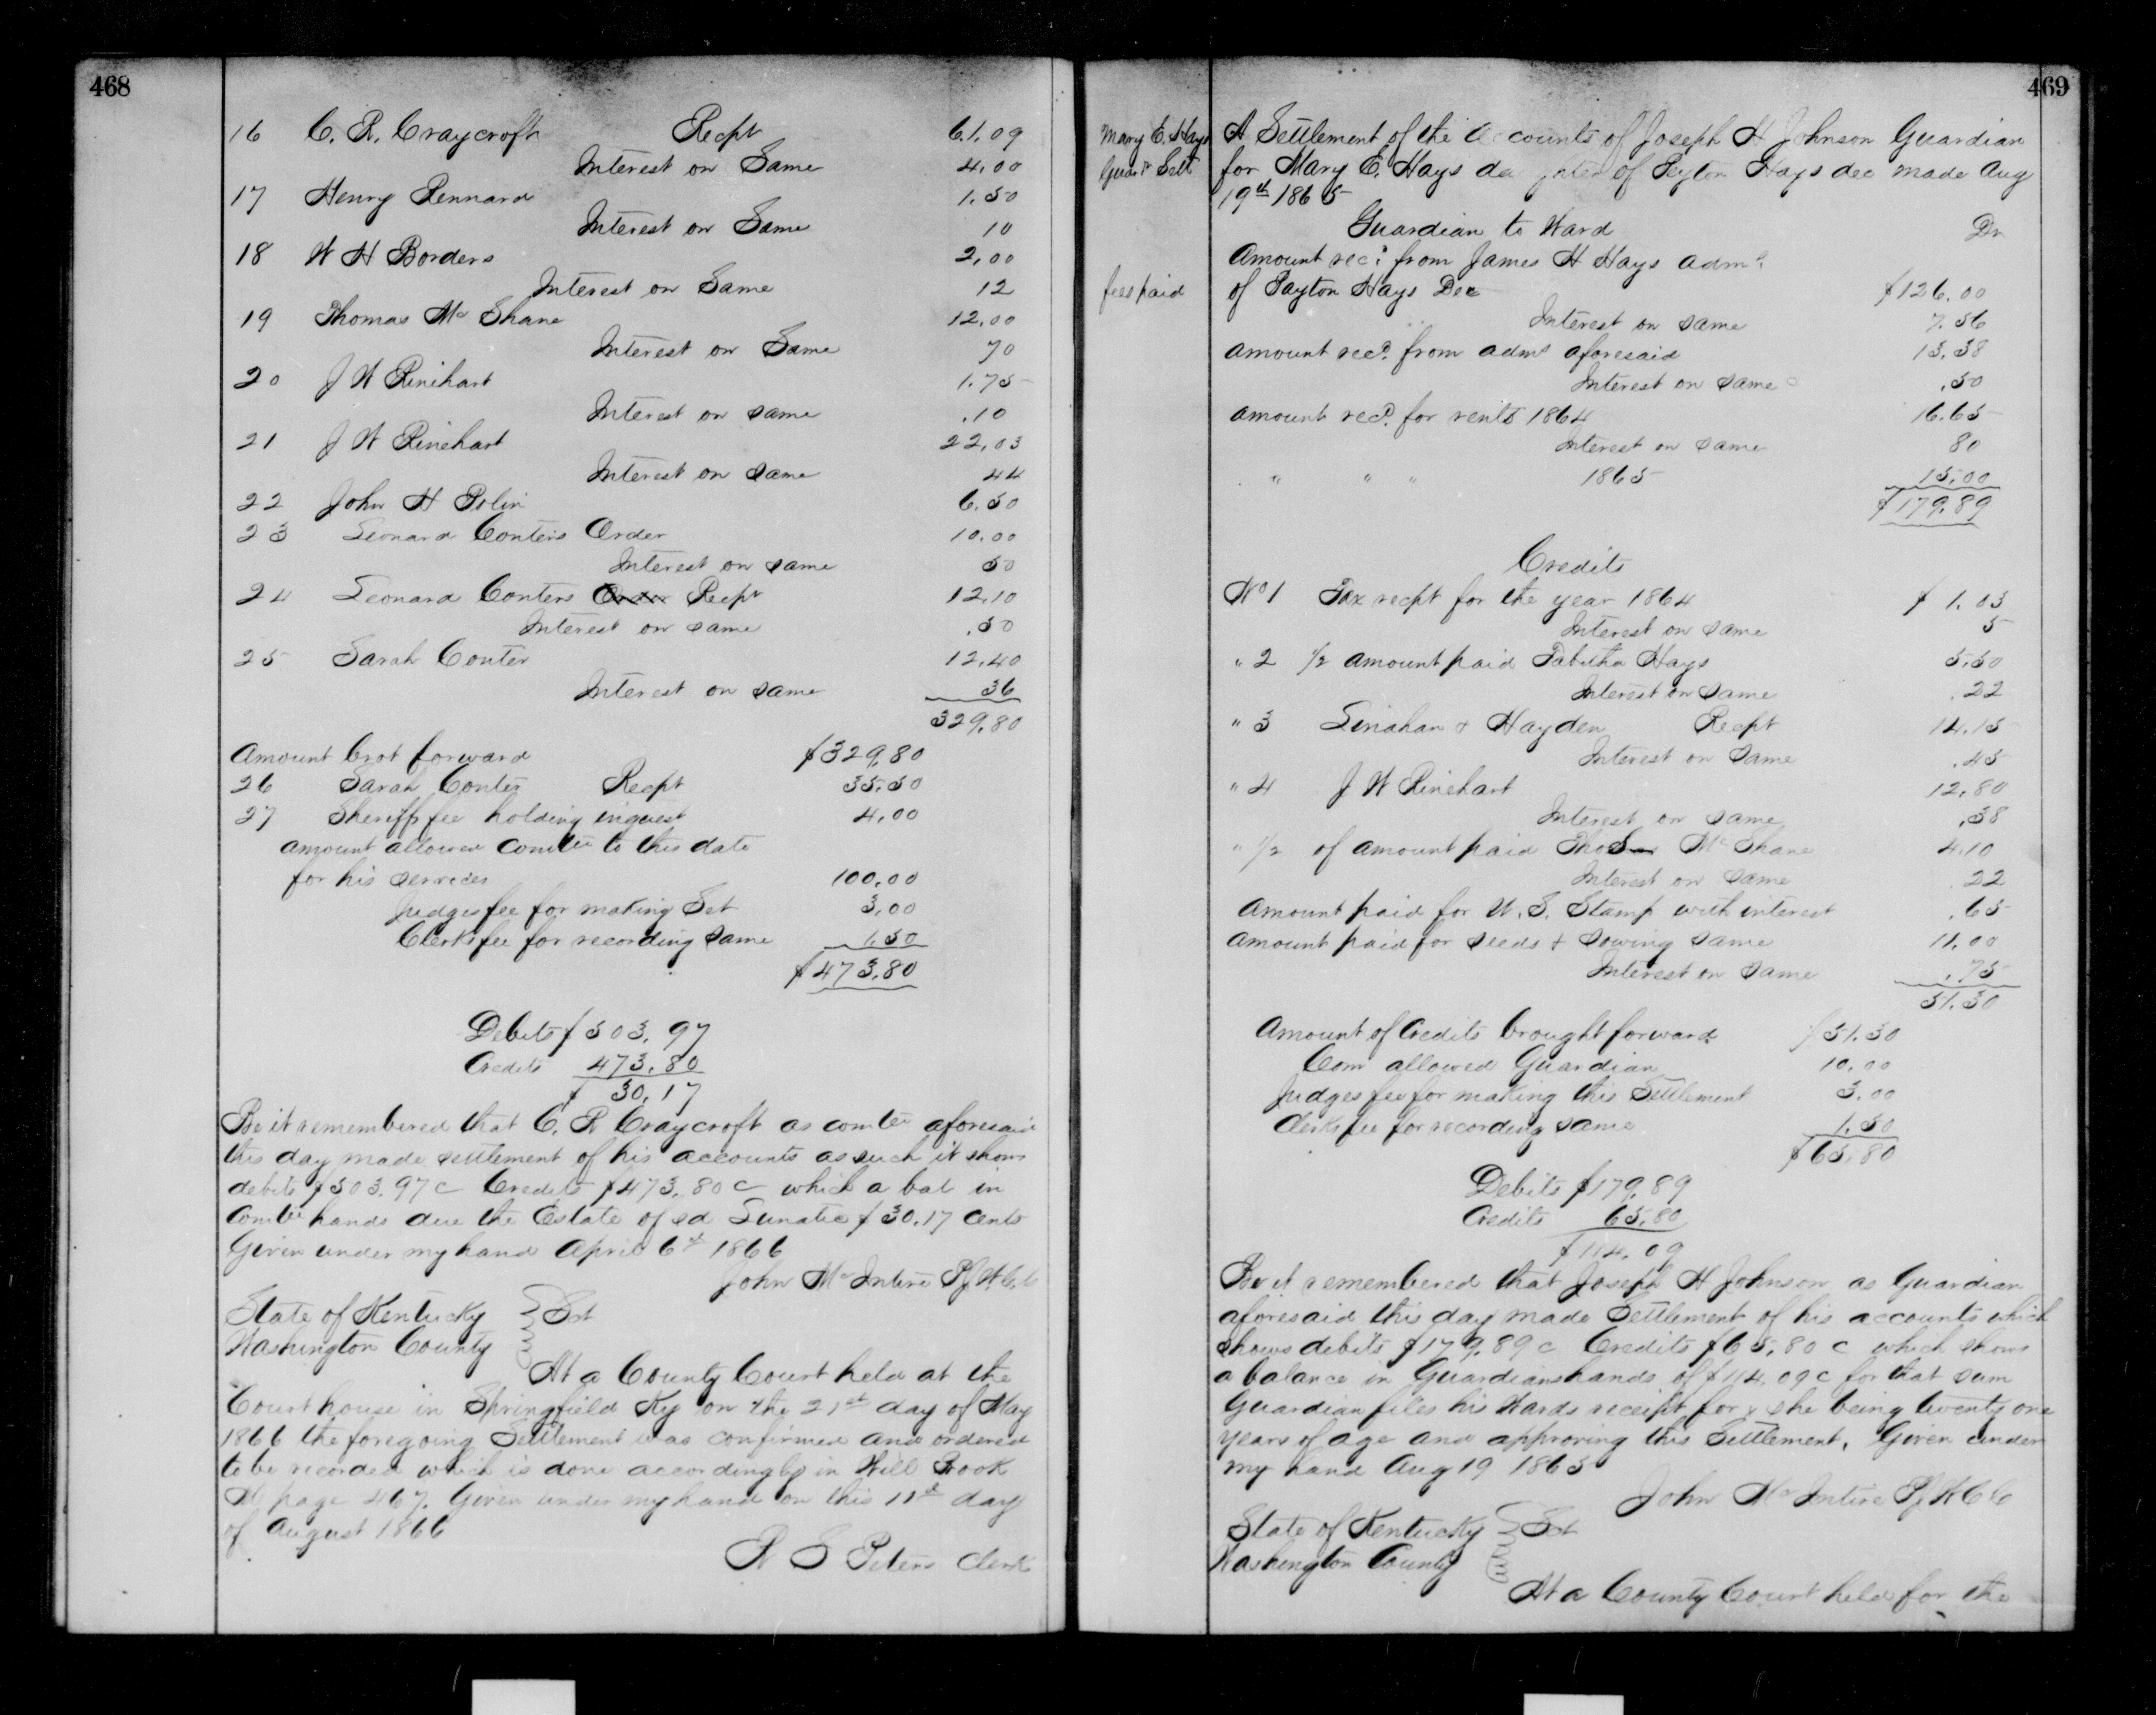 468
16 C. R. Craycroft Recpt 61.09
Interest on Same 4.00
17 Henry Rennard 1.50
Interest on Same 10
18 W H Borders 2,00
Interest on Same 12
19 Thomas Mc Shane 12,00
Interest on Same 70
20 J W Rinehart 1.75
Interest on same .10
21 J W Rinehart 22,03
Interest on same 44
22 John H Polin 6.50
23 Leonard Conters Order 10.00
Interest on same 50
24 Leonard Conters Order Recpt 12,10
Interest on same .50
25 Sarah Conter 12,40
Interest on same 36
329.80
Amount brot forward $329,80
26 Sarah Conter Recpt 35.50
27 Sheriffs fee holding inquest 4,00
amount allowed comtee to this date
for his services 100.00
Judges fee for making Set 3,00
Clerks fee for recording same 1,50
$473,80
Debits $503.97
Credits 473,80
$ 30,17
Be it remembered that C. R Craycroft as comtee aforesaid
this day made settlement of his accounts as such it shows
debits $503.97c Credits $473,80c which a bal in
Comtee hands due the Estate of sd Lunatic $30.17 cents
Given under my hand April 6th 1866
John McIntire PJWCC
State of Kentucky Sct
Washington County
At a County Court held at the
Court house in Springfield Ky on the 21st day of May
1866 the foregoing Settlement was confirmed and ordered
to be recorded which is done accordingly in Will Book
M page 467. Given under my hand on this 11th day
of August 1866
W S Peters Clerk
469
Mary E. Hays
Guar Sett
fees paid
A Settlement of the Accounts of Joseph H Johnson Guardian
for Mary E. Hays daughter of Peyton Hays dec made Aug
19th 1865
Guardian to Ward Dr
Amount recd from James H Hays admr
of Payton Hays Dec $126.00
Interest on same 7.56
amount recd from admr aforesaid 13.38
Interest on same .50
amount recd for rents 1864 16.65
Interest on same 80
" " " 1865 15,00
$179.89
Credits
No 1 Tax recpt for the year 1864 $1.03
Interest on same 5
" 2 1/2 amount paid Tabitha Hays 5.50
Interest on same .22
" 3 Linahan & Hayden Recpt 14.15
Interest on same .45
" 4 J W Rinehart 12,80
Interest on same .38
" 1/2 of amount paid Thos McShane 4.10
Interest on same .22
Amount paid for U. S. Stamp with interest .65
Amount paid for seeds & sowing same 11.00
Interest on same .75
51.30
Amount of Credits brought forward $51.30
Com allowed Guardian 10.00
Judges fee for making this Settlement 3.00
Clerks fee for recording same 1.50
$65,80
Debits $179,89
Credits 65,80
$114.09
Be it remembered that Joseph H Johnson as Guardian
aforesaid this day made Settlement of his accounts which
shows debits $179.89c Credits $65,80c which shows
a balance in Guardians hands of $114.09c for that sum
Guardian files his Wards receipt for & she being twenty one
years of age and approving this Settlement. Given under
my hand Aug 19 1865
John McIntire PJWCC
State of Kentucky Sct
Washington County
At a County Court held for the